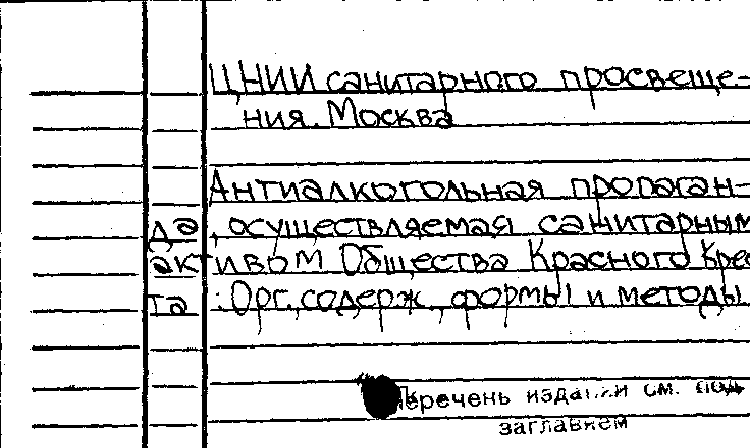 ЦНИИ санитарного просвеще-
ния. Москва
Антиалкогольная пропаган-
да, осуществляемая санитарным
активом Общества Красного Крес
та : Орг., содерж., формы и методы
Перечень изданий см. под
заглавием